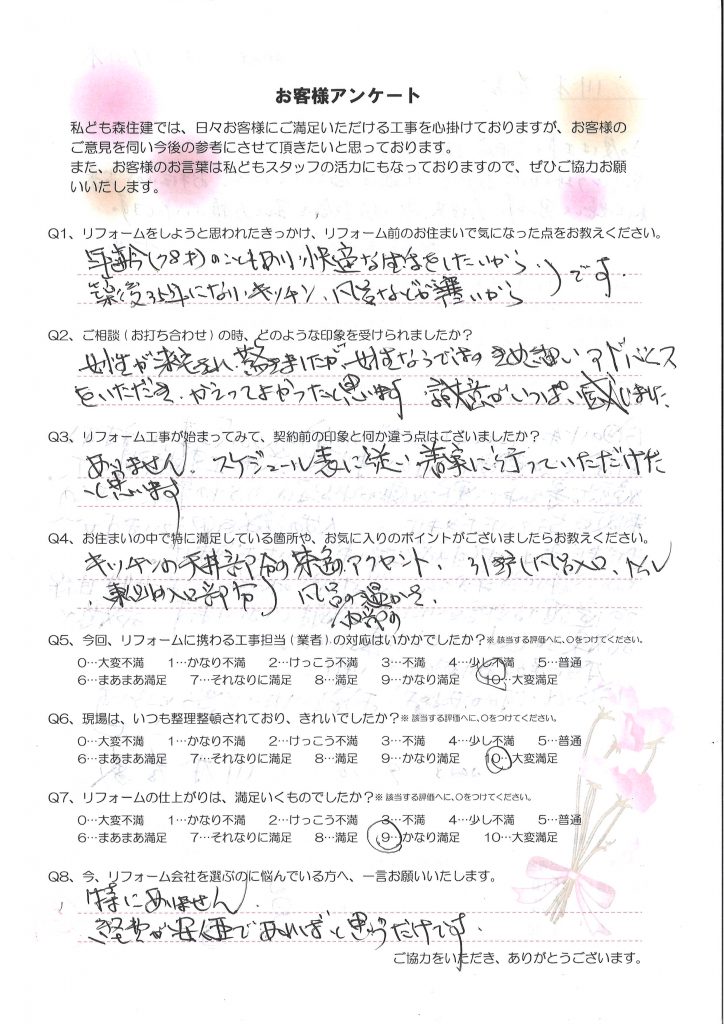 お客様アンケート
私ども森住建では、日々お客様にご満足いただける工事を心掛けておりますが、お客様の
ご意見を伺い今後の参考にさせて頂きたいと思っております。
また、お客様のお言葉は私どもスタッフの活力にもなっておりますので、ぜひご協力お願
いいたします。
Q1、リフォームをしようと思われたきっかけ、リフォーム前のお住まいで気になった点をお教えください。
年齢(78才)のこともあり、快適な生活をしたいから、
築後35年になりキッチン、風呂などが寒いから )です.
Q2、ご相談(お打ち合わせ)の時、どのような印象を受けられましたか?
女性が来宅され、驚きましたが、女性ならではのきめ細いアドバイス
をいただき、かえってよかったと思います 誠意がいっぱい感じました
Q3、リフォーム工事が始まってみて、契約前の印象と何か違う点はございましたか?
ありません. スケジュール表に従い着実に行っていただけた
と思います
Q4、お住まいの中で特に満足している箇所や、お気に入りのポイントがございましたらお教えください。
キッチンの天井部分の茶色のアクセント、引き戸(風呂入口、トイレ
、東側の入口部分) 風呂の温かさ、
内部の
Q5、今回、リフォームに携わる工事担当(業者)の対応はいかがでしたか?※該当する評価へに、○をつけてください。
0…大変不満 1…かなり不満 2…けっこう不満 3…不満 4…少し不満 5…普通
6…まあまあ満足 7…それなりに満足 8…満足 9…かなり満足 10…大変満足
Q6、現場は、いつも整理整頓されており、きれいでしたか?※該当する評価へに、○をつけてください。
0…大変不満 1…かなり不満 2…けっこう不満 3…不満 4…少し不満 5…普通
6…まあまあ満足 7…それなりに満足 8…満足 9…かなり満足 10…大変満足
Q7、リフォームの仕上がりは、満足いくものでしたか?※該当する評価へに、○をつけてください。
0…大変不満 1…かなり不満 2…けっこう不満 3…不満 4…少し不満 5…普通
6…まあまあ満足 7…それなりに満足 8…満足 9…かなり満足 10…大変満足
Q8、今、リフォーム会社を選ぶのに悩んでいる方へ、一言お願いいたします。
特にありません.
経費が安価であればと思うだけです.
ご協力をいただき、ありがとうございます。